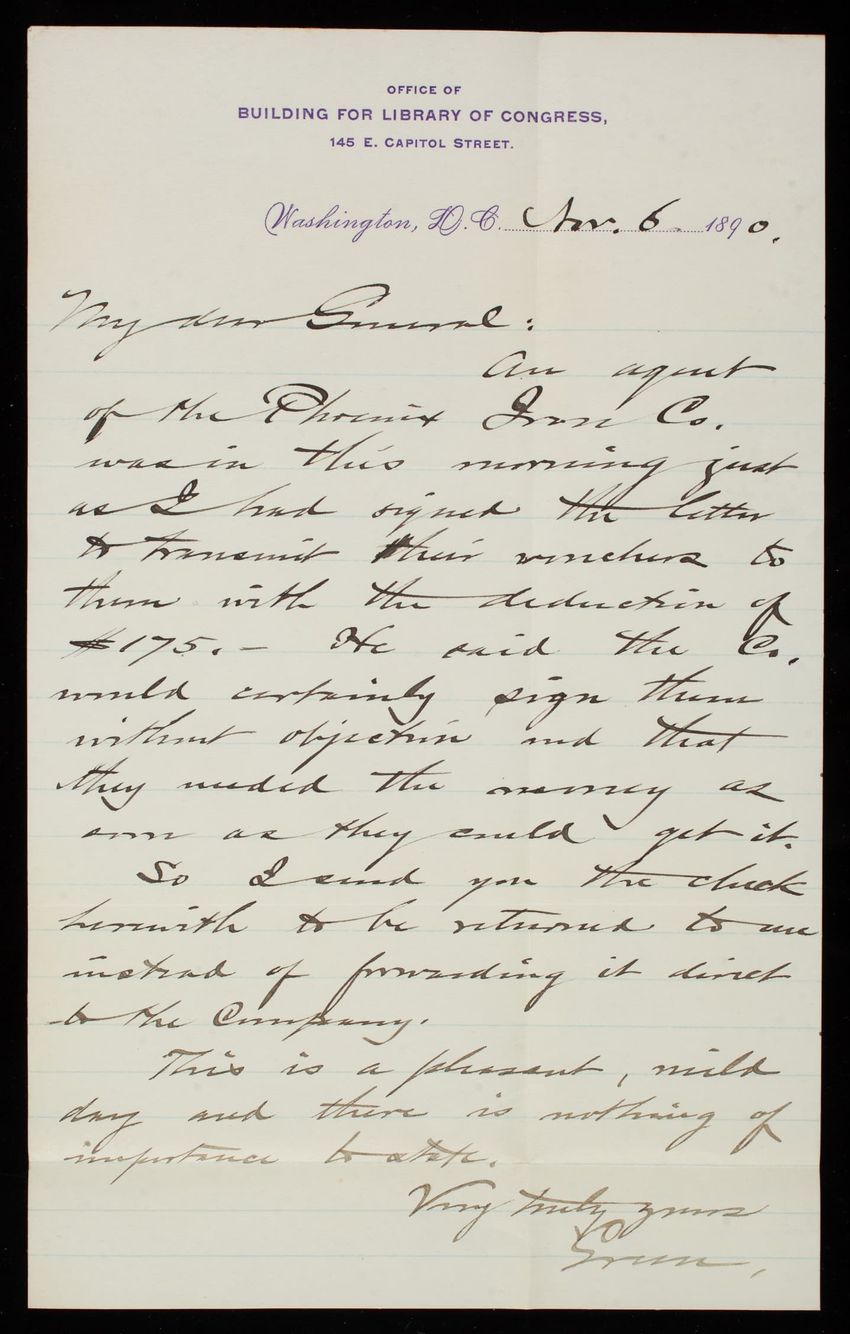 OFFICE OF
BUILDING FOR LIBRARY OF CONGRESS,
145 E. CAPITOL STREET.
Washington, D.C. Nov. 6. 1890.
My dear General:
An agent
of the Phoenix Iron Co.
was in this morning just
as I had signed the letter
to transmit their vouchers to
them with the deduction of
$175.— He said the Co.
would certainly sign them
without objection and that
they needed the money as
soon as they could get it.
So I send you the check
herewith to be returned to me
instead of forwarding it direct
to the Company.
This is a pleasant, mild
day and there is nothing of
importance to state.
Very truly yours
Green,